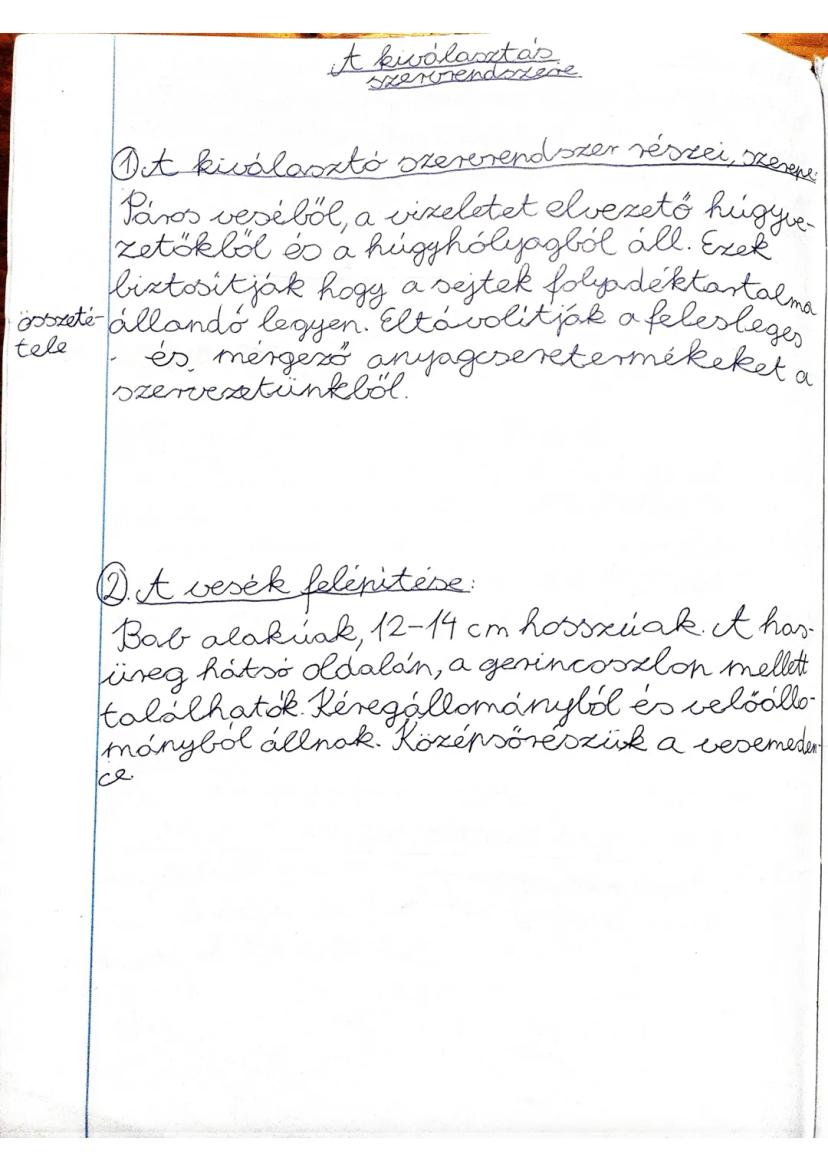 A kiválasztás
szervrendszere
① A kiválasztó szervrendszer részei, szerepe:
Páros veséből, a vizeletet elvezető húgyve-
zetőkből és a húgyhólyagból áll. Ezek
biztosítják hogy a sejtek folyadéktartalma
összeté-
tele
állandó legyen. Eltávolítják a felesleges
és mérgező anyagcseretermékeket a
szervezetünkből.
②. A vesék felépítése:
Bab alakúak, 12-14 cm hosszúak. A has-
üreg hátsó oldalán, a gerincoszlop mellett
találhatók. Kéregállományból és velőállo-
mányból állnak. Középsőrészük a vesemeden-
ce.